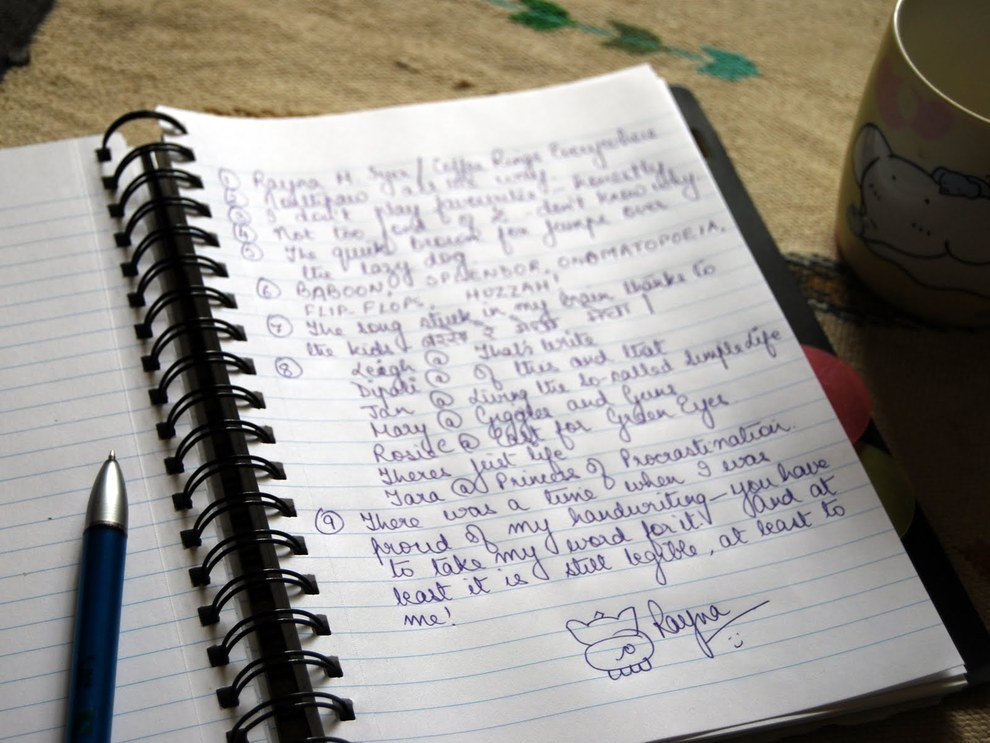 ① Rayna M. Iyer / Coffee Rings Everywhere
② are my
③ I don't play favourites - honestly
④ Not too fond of - don't know why
⑤ The quick brown fox jumps over
the lazy dog
⑥ BABOON! SPLENDOR, ONOMATOPOEIA,
FLIP-FLOPS, HUZZAH!
⑦ The song stuck in my brain thanks to
the kids
⑧ Leigh @ That's Write
Dipali @ Of this and that
Jan @ Living the so-called simple life
Mary @ Giggles and Guns
Rosie C @ East for Green Eyes
Theres just life
Tara @ Princess of Procrastination.
⑨ There was a time when I was
proud of my handwriting - you have
to take my word for it! (and at
least it is still legible, at least to
me!
Rayna